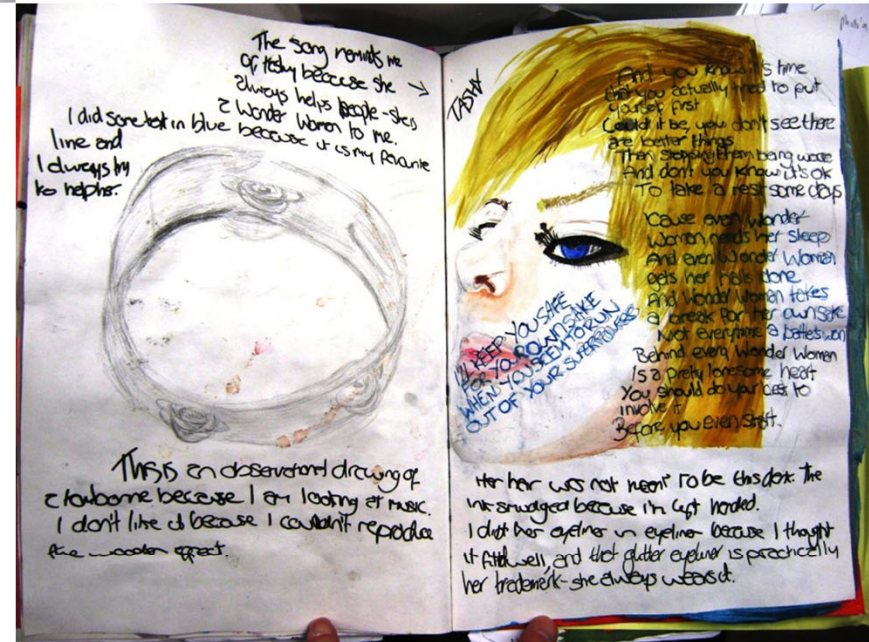 The song reminds me
of tashy because she
always helps people - shes
a wonder women to me.
I did some text in blue because it is my favourite
line and
I always try
to help her.
This is an observational drawing of
a tambourine because I am looking at music.
I don't like it because I couldn't reproduce
the wooden effect.
TASHA
And you know it's time
that you actually tried to put
yourself first
Could it be, you don't see there
are better things
Than stopping them being worse
And don't you know it's ok
To take a rest some days
'Cause even Wonder
Woman needs her sleep
And even Wonder Woman
gets her nails done
And Wonder Woman takes
a break for her own sake
Not everytime a battles won
Behind every Wonder Woman
Is a pretty lonesome heart
You should do your best to
involve it
Before you even start.
I'LL KEEP YOU SAFE
FOR YOUR OWN SAKE
WHEN YOU SEEM TO RUN
OUT OF YOUR SUPERPOWERS
Her hair was not meant to be this dark. The
ink smudged because I'm left handed.
I did her eyeliner in eyeliner because I thought
it fitted well, and that glitter eyeliner is practically
her trademark - she always wears it.